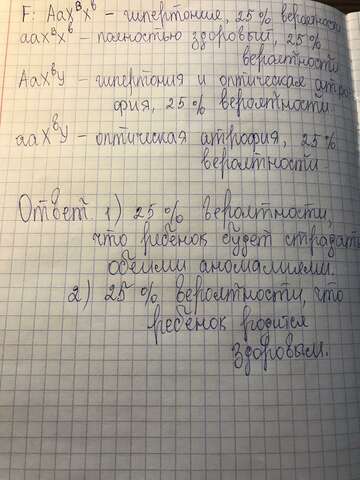 F: AaXᴮXᵇ - гипертоние, 25% вероятности
aaXᴮXᵇ - полностью здоровый, 25%
вероятности
AaXᵇY - гипертония и оптическая атро
фия, 25% вероятности
aaXᵇY - оптическая атрофия, 25%
вероятности
Ответ 1) 25% вероятности,
что ребёнок будет страдать
обеими аномалиями.
2) 25% вероятности, что
ребёнок родится
здоровым.